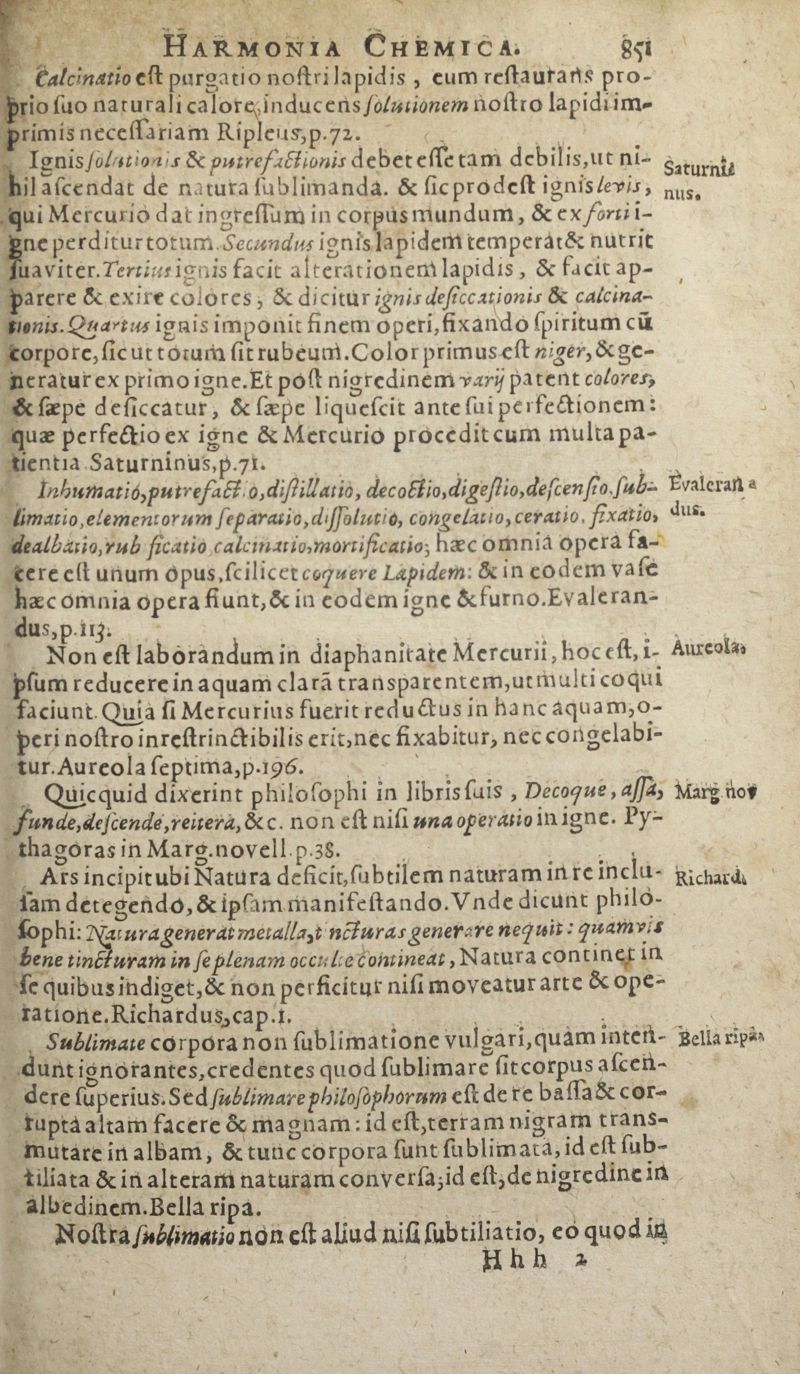 HARMONIA CHEMICA. 851
Calcinatio eſt purgatio noſtri lapidis, eum reſtaurans pro-
prio ſuo naturali calore, inducens ſolutionem noſtro lapidi im-
primis neceſſariam Ripleus, p. 72.
Ignis ſolutionis & putrefactionis debet eſſe tam debilis, ut ni-
Saturni
hil aſcendat de natura ſublimanda. & ſic prodeſt ignis levis,
nus.
qui Mercurio dat ingreſſum in corpus mundum, & ex forti i-
gne perditur totum. Secundus ignis lapidem temperat & nutrit
ſuaviter. Tertius ignis facit alterationem lapidis, & facit ap-
parere & exire colores, & dicitur ignis deſiccationis & calcina-
tionis. Quartus ignis imponit finem operi, fixando ſpiritum cū
corpore, ſicut totum ſit rubeum. Color primus eſt niger, & ge-
neratur ex primo igne. Et poſt nigredinem varij patent colores,
& ſæpe deſiccatur, & ſæpe liqueſcit ante ſui perfectionem:
quæ perfectio ex igne & Mercurio procedit cum multa pa-
tientia Saturninus, p. 71.
Inhumatio, putrefactio, diſtillatio, decoctio, digeſtio, deſcenſio, ſub-
Evaleran
limatio, elementorum ſeparatio, diſſolutio, congelatio, ceratio, fixatio,
dus.
dealbatio, rubificatio calcinatio, mortificatio; hæc omnia opera fa-
cere eſt unum opus, ſcilicet coquere Lapidem: & in eodem vaſe
hæc omnia opera fiunt, & in eodem igne & furno. Evaleran-
dus, p. 113.
Non eſt laborandum in diaphanitate Mercurii, hoc eſt, i-
Aureola,
pſum reducere in aquam clarā transparentem, ut multi coqui
faciunt. Quia ſi Mercurius fuerit reductus in hanc aquam, o-
peri noſtro inreſtrinctibilis erit, nec fixabitur, nec congelabi-
tur. Aureola ſeptima, p. 196.
Quicquid dixerint philoſophi in libris ſuis, Decoque, aſſa,
Marg. nov
funde, deſcende, reitera, &c. non eſt niſi una operatio in igne. Py-
thagoras in Marg. novell. p. 38.
Ars incipit ubi Natura deficit, ſubtilem naturam in re inclu-
Richardi
ſam detegendo, & ipſam manifeſtando. Vnde dicunt philo-
ſophi: Natura generat metalla, tincturas generare nequit: quamvis
bene tincturam in ſe plenam occulte contineat, Natura continet in
ſe quibus indiget, & non perficitur niſi moveatur arte & ope-
ratione. Richardus, cap. 1.
Sublimate corpora non ſublimatione vulgari, quam inten-
Bella ripa,
dunt ignorantes, credentes quod ſublimare ſit corpus aſcen-
dere ſuperius. Sed ſublimare philoſophorum eſt de re baſſa & cor-
rupta altam facere & magnam: id eſt, terram nigram trans-
mutare in albam, & tunc corpora ſunt ſublimata, id eſt ſub-
tiliata & in alteram naturam converſa; id eſt, de nigredine in
albedinem. Bella ripa.
Noſtra ſublimatio non eſt aliud niſi ſubtiliatio, eo quod in
Hhh 2